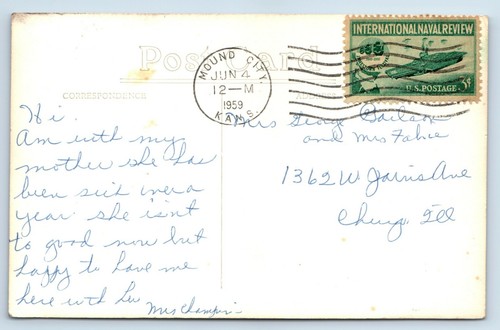 Post Card
CORRESPONDENCE
MOUND CITY,
JUN 4
12-M
1959
KANS.
INTERNATIONAL NAVAL REVIEW
U.S. POSTAGE 3¢
Hi.
Am with my
mother she has
been sick over a
year she isn't
to good now but
happy to have me
here with her
Mrs
Mrs
and Mrs
1362 W Jarvis Ave
Chicago Ill